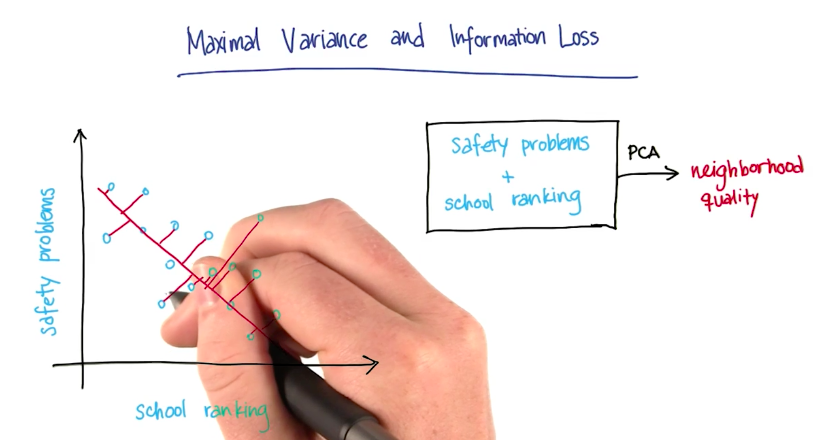 Maximal Variance and Information Loss
safety problems
school ranking
safety problems
+
school ranking
PCA
neighborhood
quality